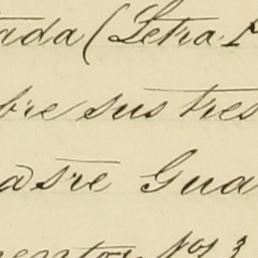 tada (Letra F
bre sus tres
asre Gua
mentos Nos 3